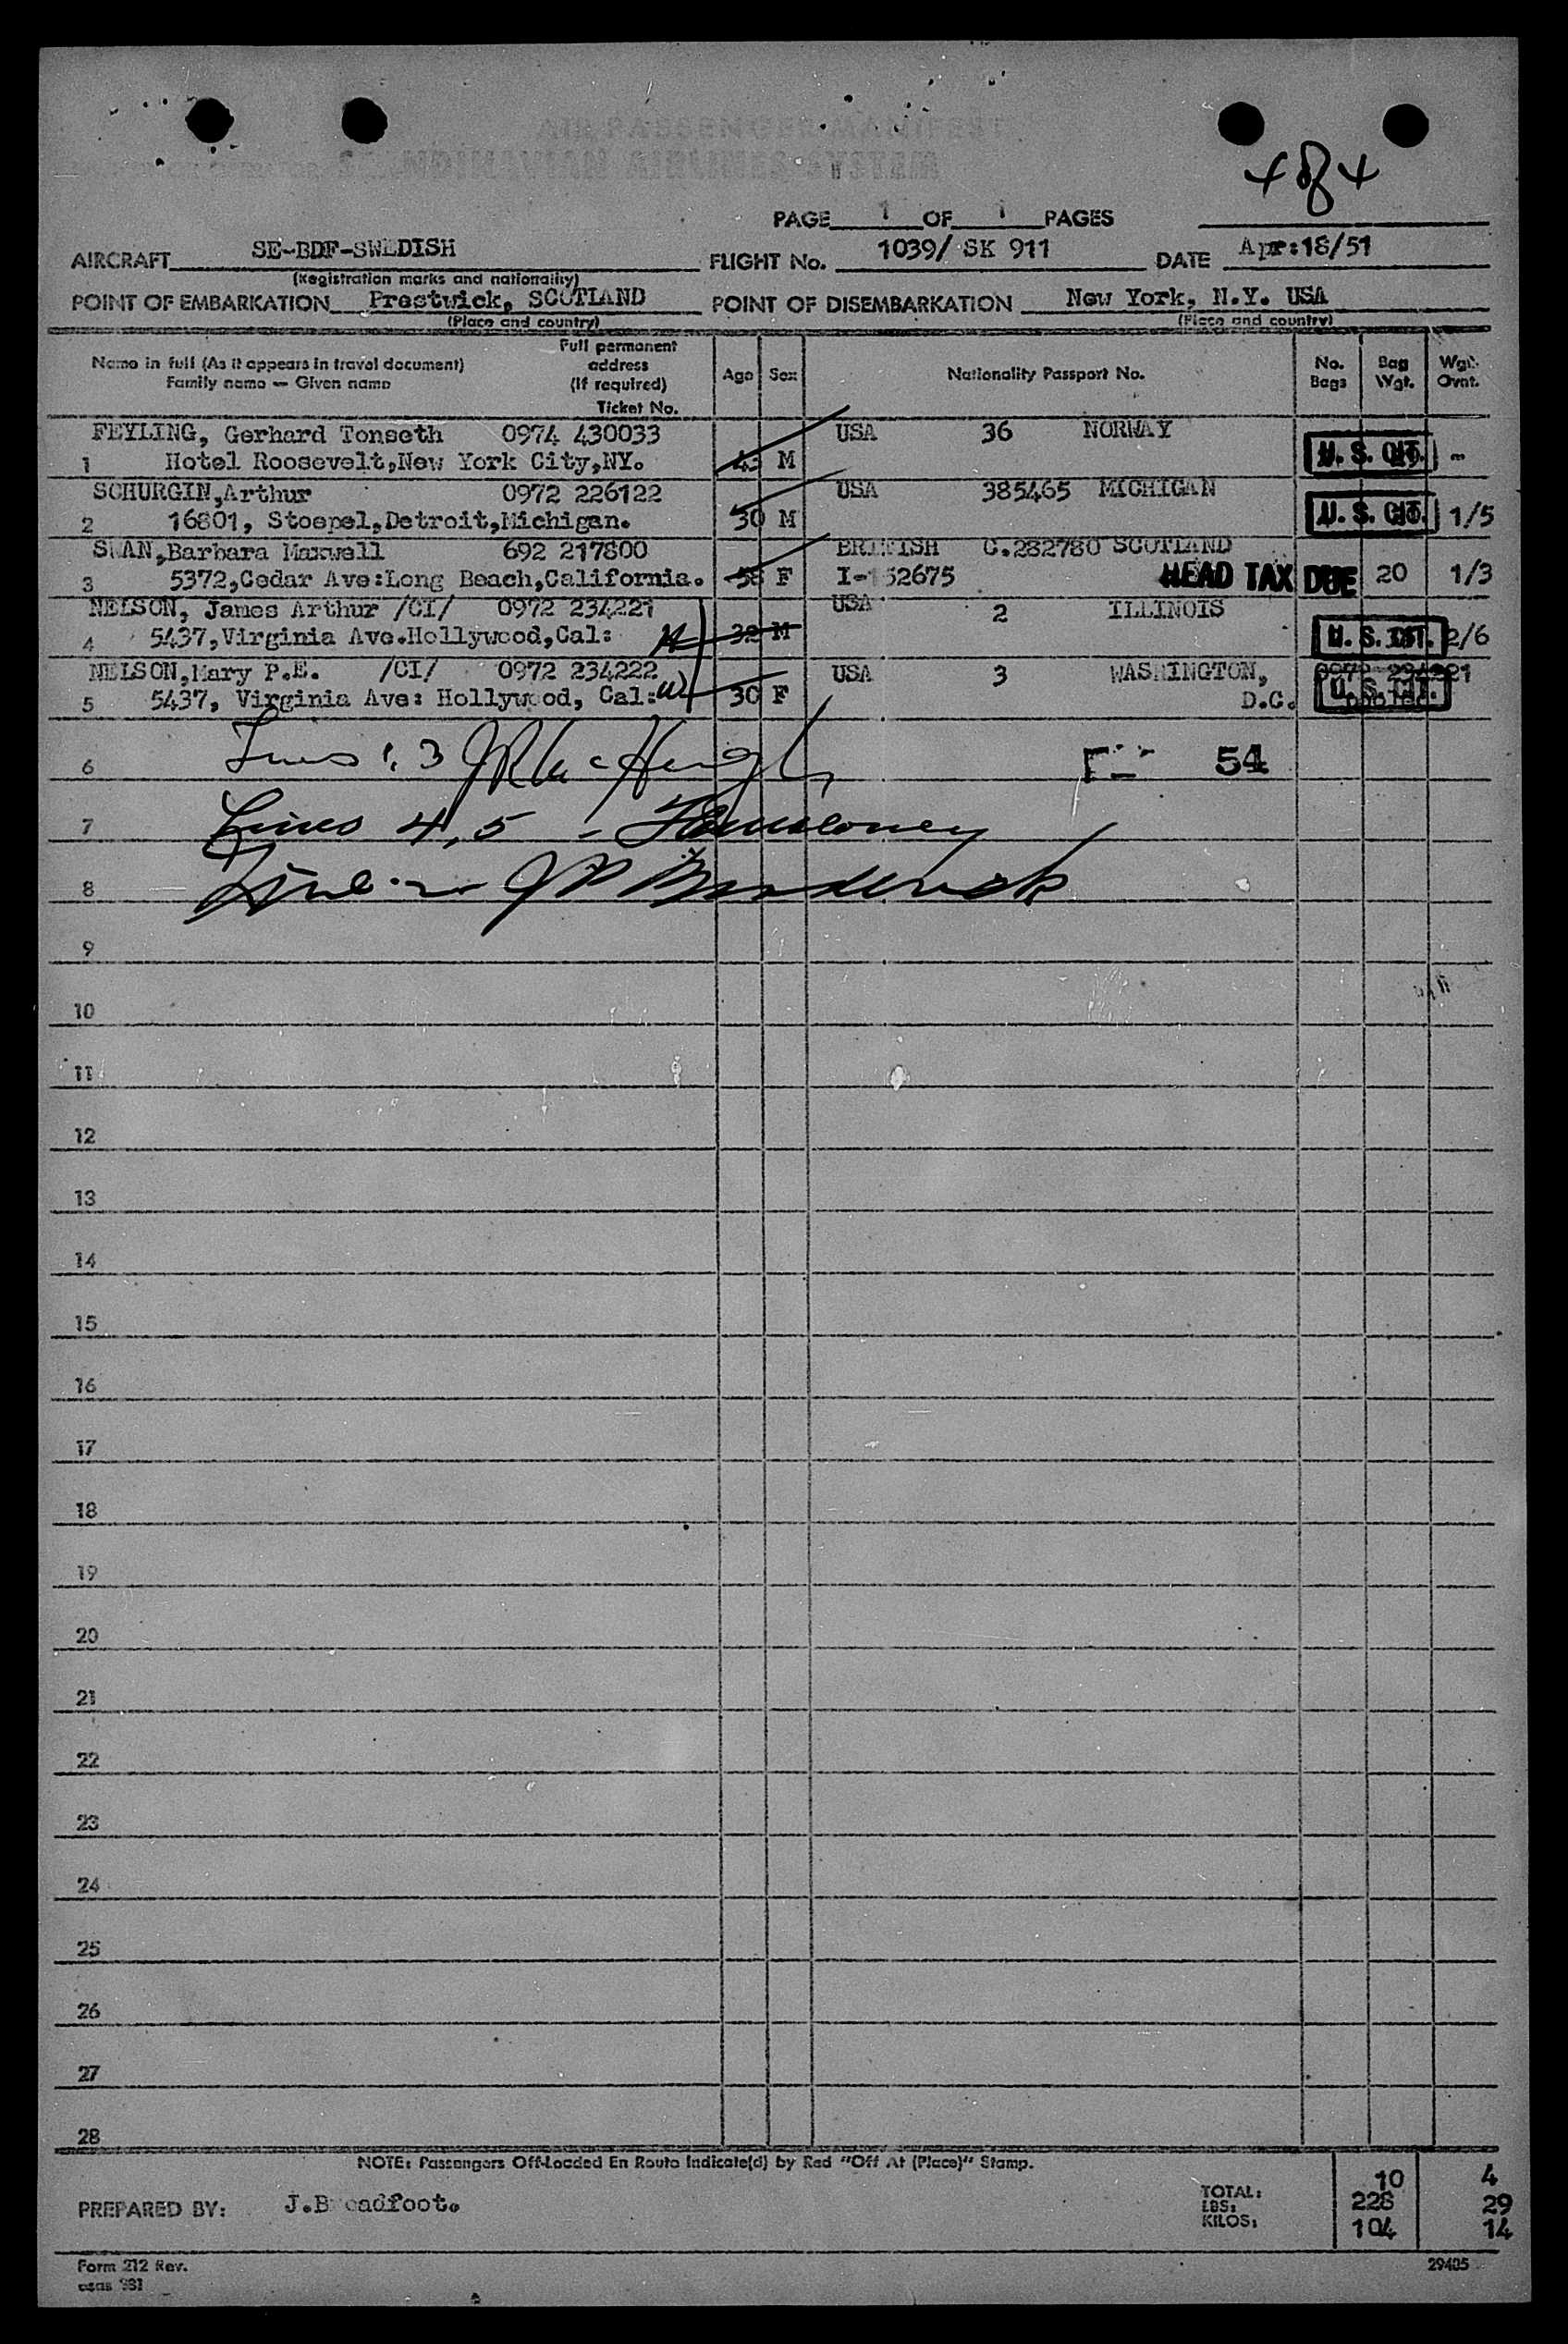 AIR PASSENGER MANIFEST
SCANDINAVIAN AIRLINES SYSTEM
4 of 4
PAGE 1 OF 1 PAGES
AIRCRAFT SE-BDF-SWEDISH FLIGHT No. 1039/ SK 911 DATE Apr:18/51
(Registration marks and nationality)
POINT OF EMBARKATION Prestwick, SCOTLAND POINT OF DISEMBARKATION New York, N.Y. USA
(Place and country) (Place and country)
Name in full (As it appears in travel document)
Family name — Given name
Full permanent
address
(If required)
Ticket No.
Age Sex Nationality Passport No. No. Bags Bag Wgt. Wgt. Ovnt.
FEYLING, Gerhard Tonseth 0974 430033 USA 36 NORWAY
1 Hotel Roosevelt,New York City,NY. 43 M U. S. CIT. -
SCHURGIN,Arthur 0972 226122 USA 385465 MICHIGAN
2 16801, Stoepel,Detroit,Michigan. 30 M U. S. CIT. 1/5
SWAN,Barbara Maxwell 692 217800 BRITISH C.282780 SCOTLAND
3 5372,Cedar Ave:Long Beach,California. 58 F I-152675 HEAD TAX DUE 20 1/3
NELSON, James Arthur /CI/ 0972 234221 USA 2 ILLINOIS
4 5437,Virginia Ave.Hollywood,Cal: H 32 M U. S. CIT. 2/6
NELSON,Mary P.E. /CI/ 0972 234222 USA 3 WASHINGTON, 0972 234221
5 5437, Virginia Ave: Hollywood, Cal: W 30 F D.C. U. S. CIT.
6 Lines 1, 3 54
7 Lines 4, 5 -
8 Line
9
10
11
12
13
14
15
16
17
18
19
20
21
22
23
24
25
26
27
28
NOTE: Passengers Off-Loaded En Route Indicate(d) by Red "Off At (Place)" Stamp.
PREPARED BY: J.Broadfoot.
TOTAL: 10 4
LBS: 228 29
KILOS: 104 14
Form 212 Rev. 29405